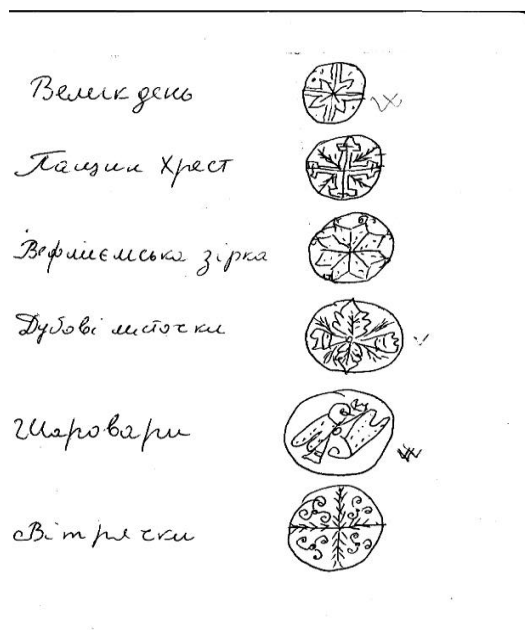 Велик день
Хрест
Вефлиємська зірка
Дубові листочки
Шаровари
Вітрячки